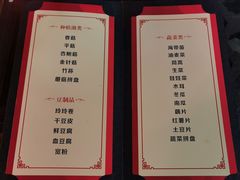 种植菌类
香菇
平菇
杏鲍菇
金针菇
竹荪
蘑菇拼盘
豆制品
玲玲卷
干豆皮
鲜豆腐
血豆腐
宽粉
蔬菜类
海带苗
油麦菜
茼蒿
生菜
娃娃菜
木耳
冬瓜
南瓜
藕片
红薯片
土豆片
蔬菜拼盘